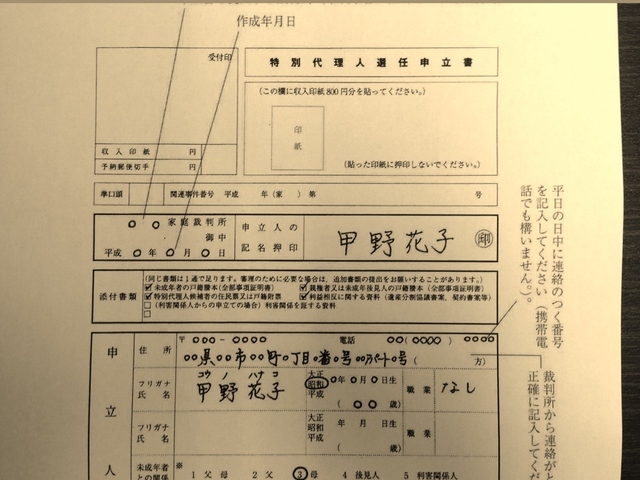 作成年月日
受付印
特別代理人選任申立書
(この欄に収入印紙800円分を貼ってください。)
印
紙
(貼った印紙に押印しないでください。)
収入印紙 円
予納郵便切手 円
準口頭 関連事件番号 平成 年(家 )第 号
○ ○ 家庭裁判所
御中
平成 ○ 年 ○ 月 ○ 日
申立人の
記名押印
甲野花子 ㊞
添付書類
(同じ書類は1通で足ります。審理のために必要な場合は、追加書類の提出をお願いすることがあります。)
☑未成年者の戸籍謄本(全部事項証明書) ☑親権者又は未成年後見人の戸籍謄本(全部事項証明書)
☑特別代理人候補者の住民票又は戸籍附票 ☑利益相反に関する資料(遺産分割協議書、契約書案等)
□(利害関係人からの申立ての場合)利害関係を証する資料
□
申立人
住所
〒 ○○○-○○○○ 電話 ○○(○○○○)○○○○
○○県○市○○町○丁目○番○号○○アパート○号( 方)
フリガナ
氏名
コウ ノ ハナコ
甲野花子
大正
昭和
平成
○年○月○日生
(○○歳)
職業
なし
フリガナ
氏名
大正
昭和
平成
年 月 日生
( 歳)
職業
未成年者
との関係
※
1 父母 2 父 ③ 母 4 後見人 5 利害関係人
平日の日中に連絡のつく番号
を記入してください(携帯電
話でも構いません。)。
裁判所から連絡がと
正確に記入してくだ